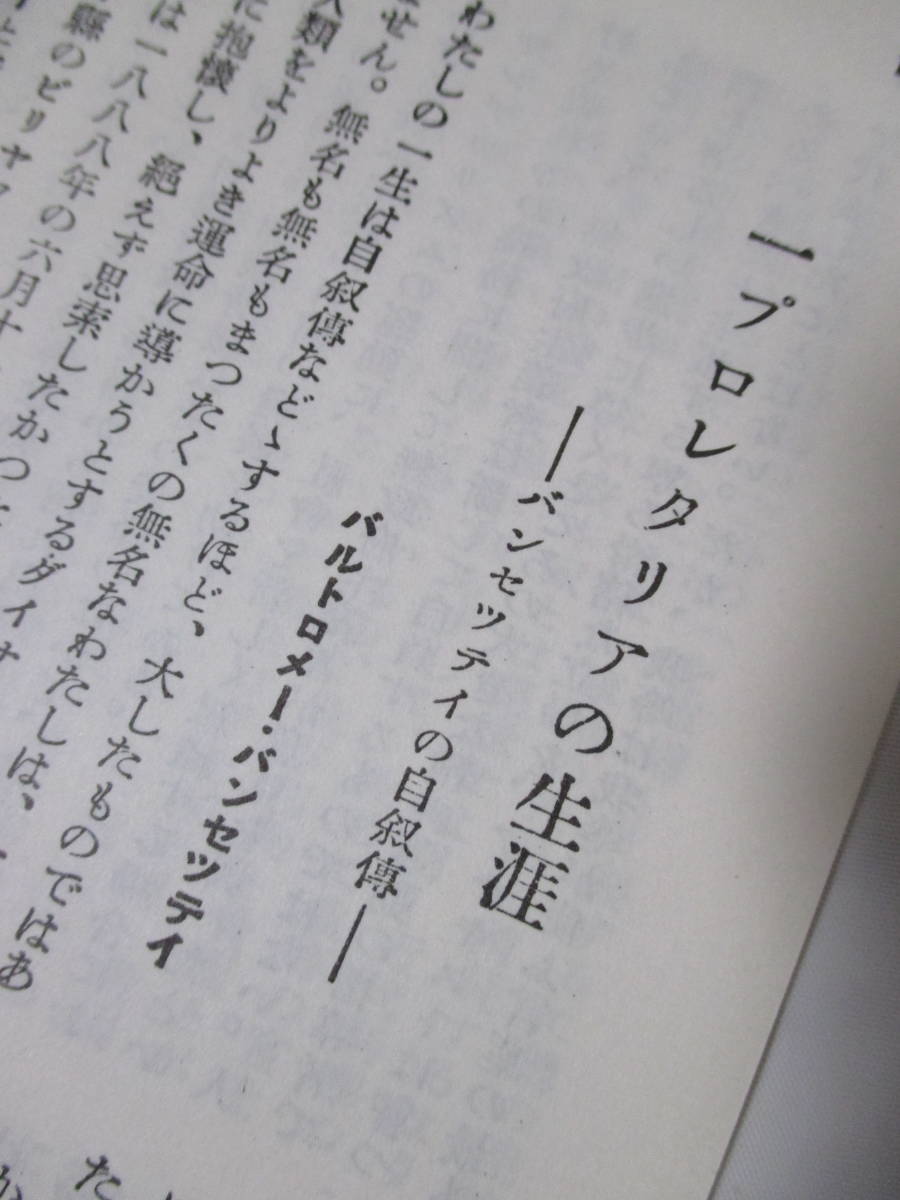 一プロレタリアの生涯
――バンセッティの自叙傳――
バルトロメー・バンセッティ
わたしの一生は自叙傳などゝするほど、大したものではあ
せん。無名も無名もまつたくの無名なわたしは、
人類をよりよき運命に導かうとするダイナ
に抱懐し、絶えず思索したかつ
は一八八八年の六月十
縣のビリヤフ
た
か